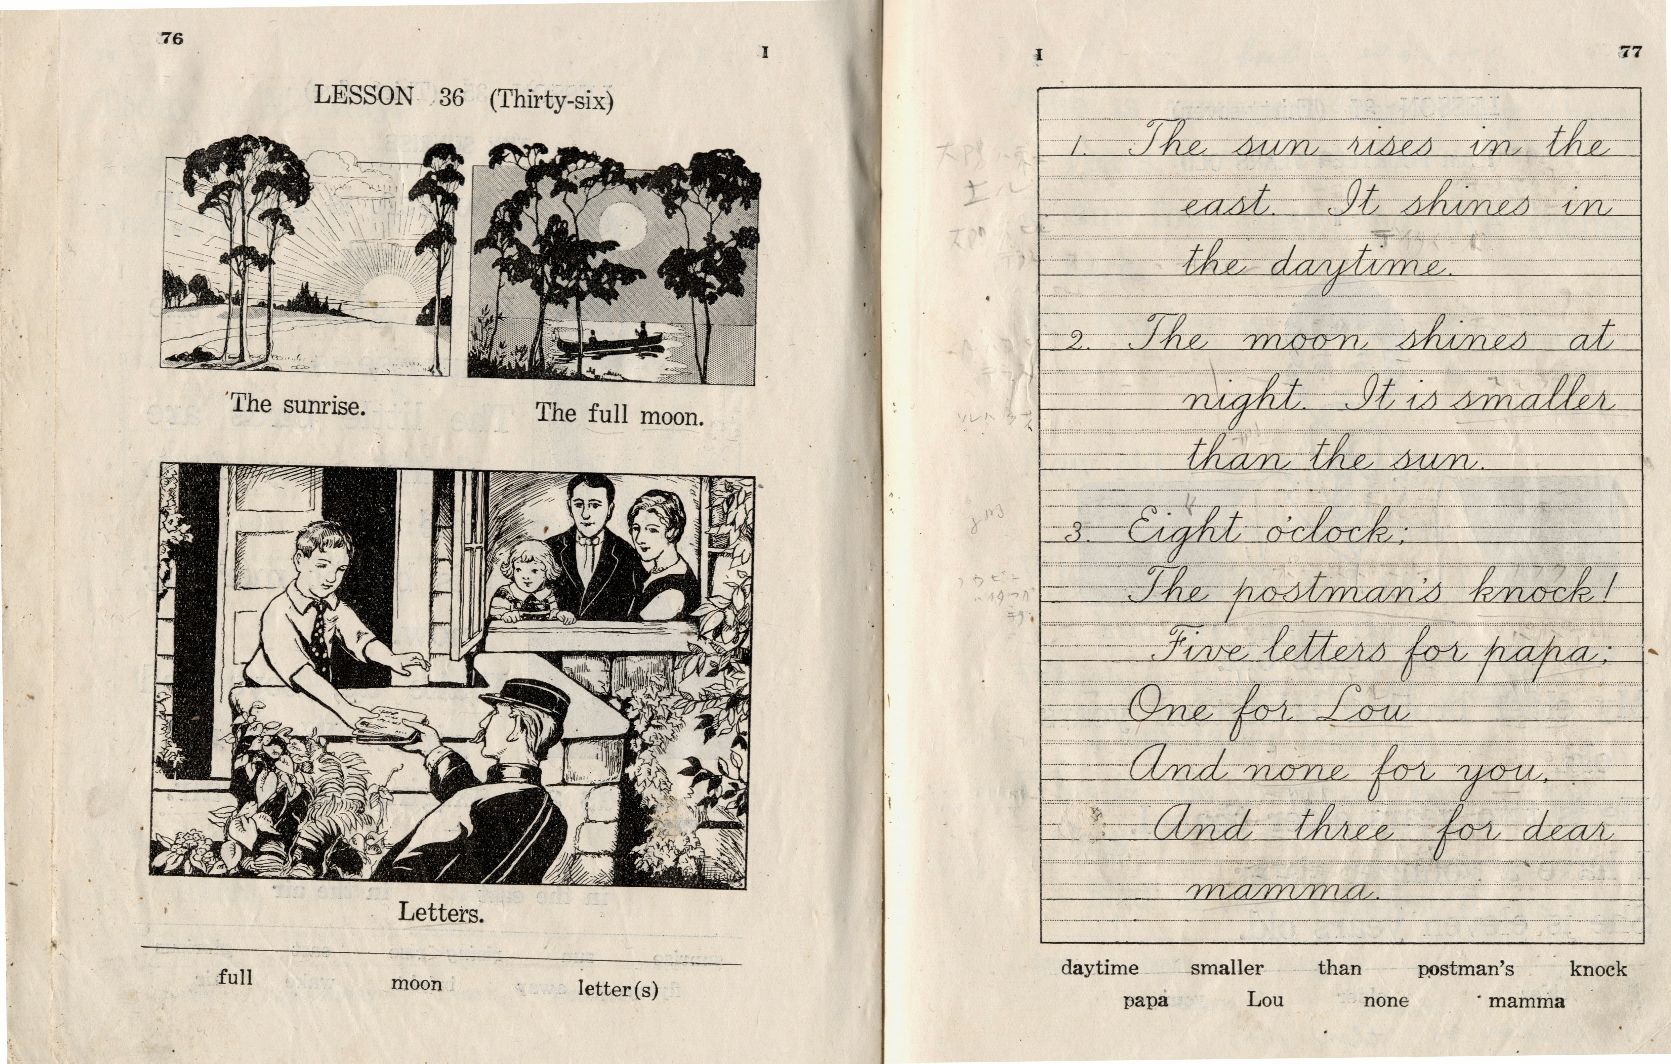 76
I
LESSON 36 (Thirty-six)
The sunrise.
The full moon.
Letters.
full moon letter(s)
I
77
1. The sun rises in the
east. It shines in
the daytime.
2. The moon shines at
night. It is smaller
than the sun.
3. Eight o'clock;
The postman's knock!
Five letters for papa;
One for Lou
And none for you,
And three for dear
mamma.
daytime smaller than postman's knock
papa Lou none mamma